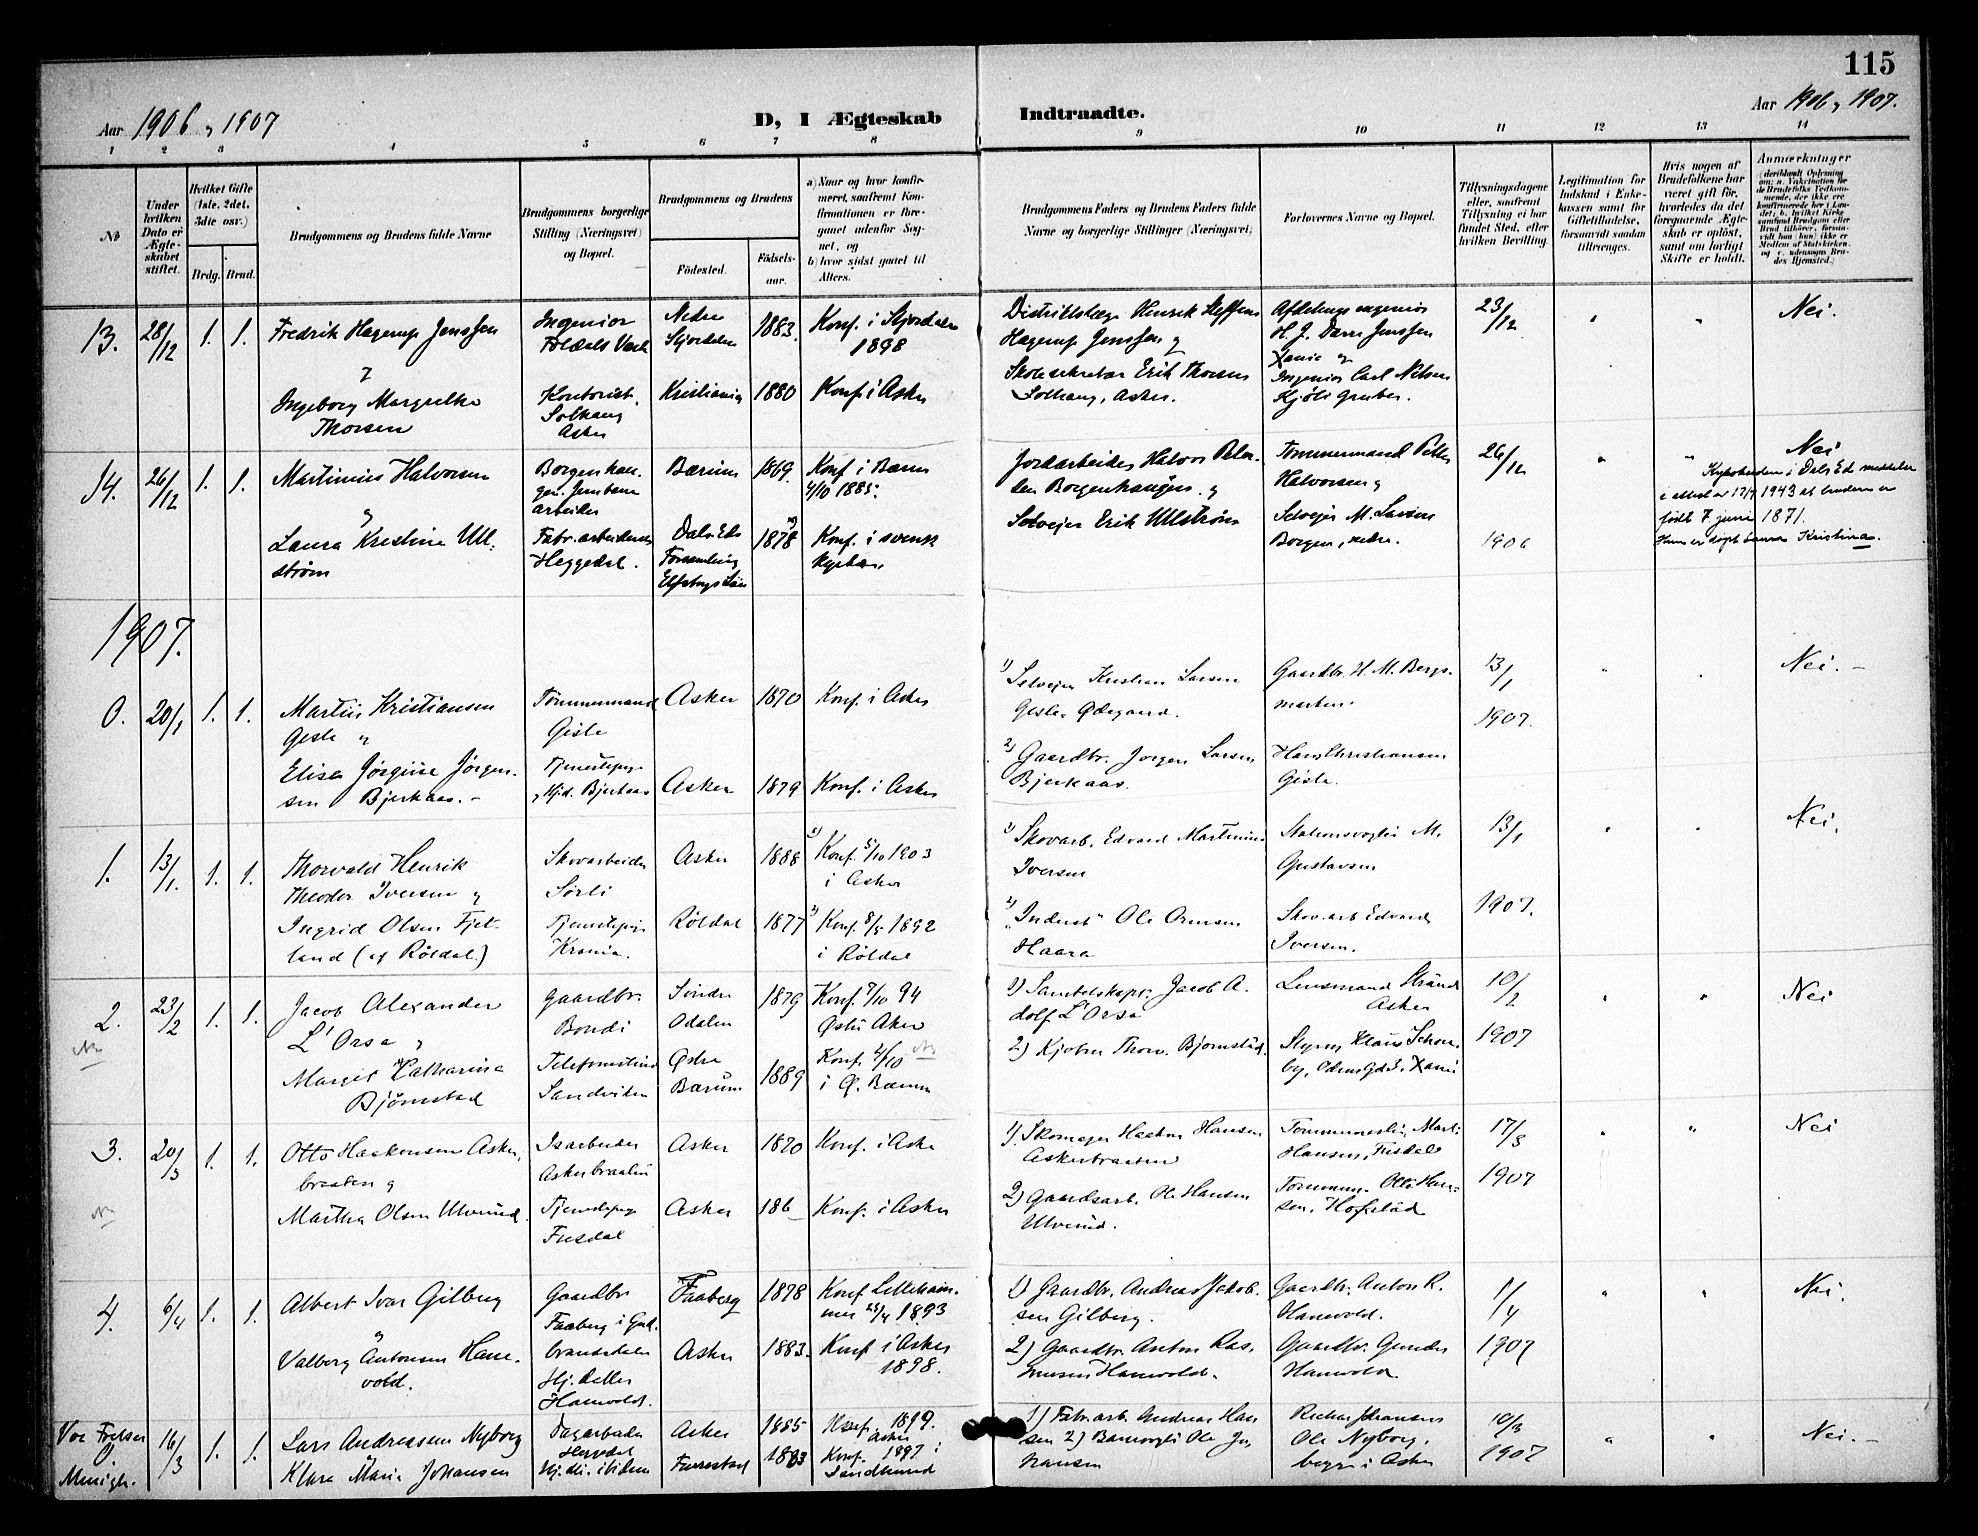 115
Aar 1906 og 1907
D, I Ægteskab Indtraadte.
Aar 1906 og 1907.
1 2 3 4 5 6 7 8 9 10 11 12 13 14
№
Under hvilken Dato er Ægteskabet stiftet.
Hvilket Gifte (1ste, 2det, 3die osv.)
Brdg. Brud.
Brudgommens og Brudens fulde Navne
Brudgommens borgerlige Stilling (Næringsvei) og Bopæl.
Brudgommens og Brudens
Fødested. Fødselsaar.
a) Naar og hvor konfirmeret, saafremt Konfirmationen er foregaaet udenfor Sognet, og
b) hvor sidst gaaet til Alters.
Brudgommens Faders og Brudens Faders fulde Navne og borgerlige Stillinger (Næringsvei)
Forlovernes Navne og Bopæl.
Tillysningsdagene eller, saafremt Tillysning ei har fundet Sted, efter hvilken Bevilling.
Legitimation for Indskud i Enkekassen samt for Giftetilladelse, forsaavidt saadan tiltrænges.
Hvis nogen af Brudefolkene har været gift før, hvorledes da det foregaaende Ægteskab er opløst, samt om lovligt Skifte er holdt.
Anmærkninger
13. 28/12 1. 1.
Fredrik Hagerup Jenssen
og
Ingeborg Margrethe
Thorsen
Ingeniør
Foldals Verk
Kontorist.
Solhaug
Asker
Nedre
Stjørdalen
1883.
Kristiania 1880
Konf. i Stjørdalen
1898
Konf. i Asker
Distriktslæge Henrik Steffens
Hagerup Jenssen og
Skolesekretær Erik Thorsen
Solhaug, Asker.
Afdelingsingeniør
H. J. Darre Jenssen
Xania og
Ingeniør Carl Nilsen
Kjøli Gruber.
23/12
Nei.
14. 26/12 1. 1.
Martinius Halvorsen
og
Laura Kristine Ull-
strøm
Jernbane
arbeider
Fabr.arbeiderske
Heggedal.
Bærum 1869.
Dals-Eds
Forsamling
Elfsborgs Län
1878
Konf. i Bærum
4/10 1885.
Konf. i svensk
Jordarbeider Halvor
Borgenhaugen. og
Selveier Erik Ullstrøm
Tømmermand Petter
Halvorsen og
Selveier M. Larsen
Borgen, nedre.
26/12
1906
Nei
Kyrkoherden i Dals Ed meddeler
i attest av 17/7 1943 at bruden er
født 7 juni 1871.
Hun er døpt Laura Kristina.
1907.
0. 20/1 1. 1.
Martin Kristiansen
Gisle og
Elise Jørgine Jørgen-
sen Bjerkaas. -
Tømmermand
Gisle
Tjenestepige
Hjd. Bjerkaas
Asker 1870
Asker 1879
Konf. i Asker
Konf. i Asker
1) Selveier Kristian Larsen
Gisle Ødegaard.
2) Gaardbr. Jørgen Larsen
Bjerkaas.
Gaardbr. H. M. Bergs-
marken.
Hans Christiansen
Gisle.
13/1
1907.
Nei. -
1. 13/1. 1. 1.
Thorvald Henrik
Theodor Iversen og
Ingrid Olsen Fjet-
land (af Røldal.)
Skovarbeider
Sørli
Tjenestepige
Krania.
Asker 1888
Røldal 1877
1) Konf. 5/10 1903
i Asker
2) Konf. 8/5 1892
i Røldal
1) Skovarb. Edvard Martinius
Iversen
2) "Inderst" Ole Ormsen
Haara
Stationsvogter M.
Gustavsen
Skovarb Edvard
Iversen.
13/1
1907.
Nei.
2. 23/2 1. 1.
Jacob Alexander
L'Orsa og
Margit Catharina
Bjørnstad
Gaardbr.
Bondi
Telefonistinde
Sandviken
Søndre
Odalen
1879
Østre
Bærum
1889
Konf. 7/10 94
Østre Aker
Konf. 4/10
i Ø. Bærum
1) Jacob A-
dolf L'Orsa
2) Kjøbm. Thorv. Bjørnstad.
Lensmand Strand
Asker
10/2
1907
Nei
3. 20/3 1. 1.
Otto Haakonsen Asker-
braaten og
Martha Olsen Ulverud.
Isarbeider
Askerbraaten
Tjenestepige
Fusdal
Asker 1870
Asker 186_
Konf. i Asker
Konf. i Asker
1). Skomager Haakon Hansen
Askerbraaten
2) Gaardsarb. Ole Hansen
Ulverud.
Hansen, Fusdal
Tømmerm. Otto Han-
sen, Hofstad
17/3
1907
Nei
4. 6/4 1. 1.
Albert Ivar Gilberg
og
Valborg Antonsen Hane-
vold.
Gaardbr
Faaberg i Gud-
brandsdalen
Hanevold.
Faaberg 1878
Asker 1883.
Konf Lilleham-
mer 1893
Konf i Asker
1898.
1) Gaardbr. Andreas Jakob-
sen Gilberg.
2) Gaardbr. Anton Ras-
musen Hanevold.
Gaardbr. Anton R.
Hanevold.
Gaardbr. Gunder
Hanevold.
1/4
1907
Nei.
Vor Frelser
Menigh.
16/3 1. 1.
Lars Andreasen Nyborg
og
Klara Maria Johansen
Dagarbeider
Heggedal
Asker 1885
Furrestad 1883
Konf. 1899.
Asker
Konf. 1897 i
1) Fabr.arb. Andreas Han
sen 2) Banevogter Ole Jo
hansen
Ole Nyborg,
begge i Asker
10/3
1907
Nei. -